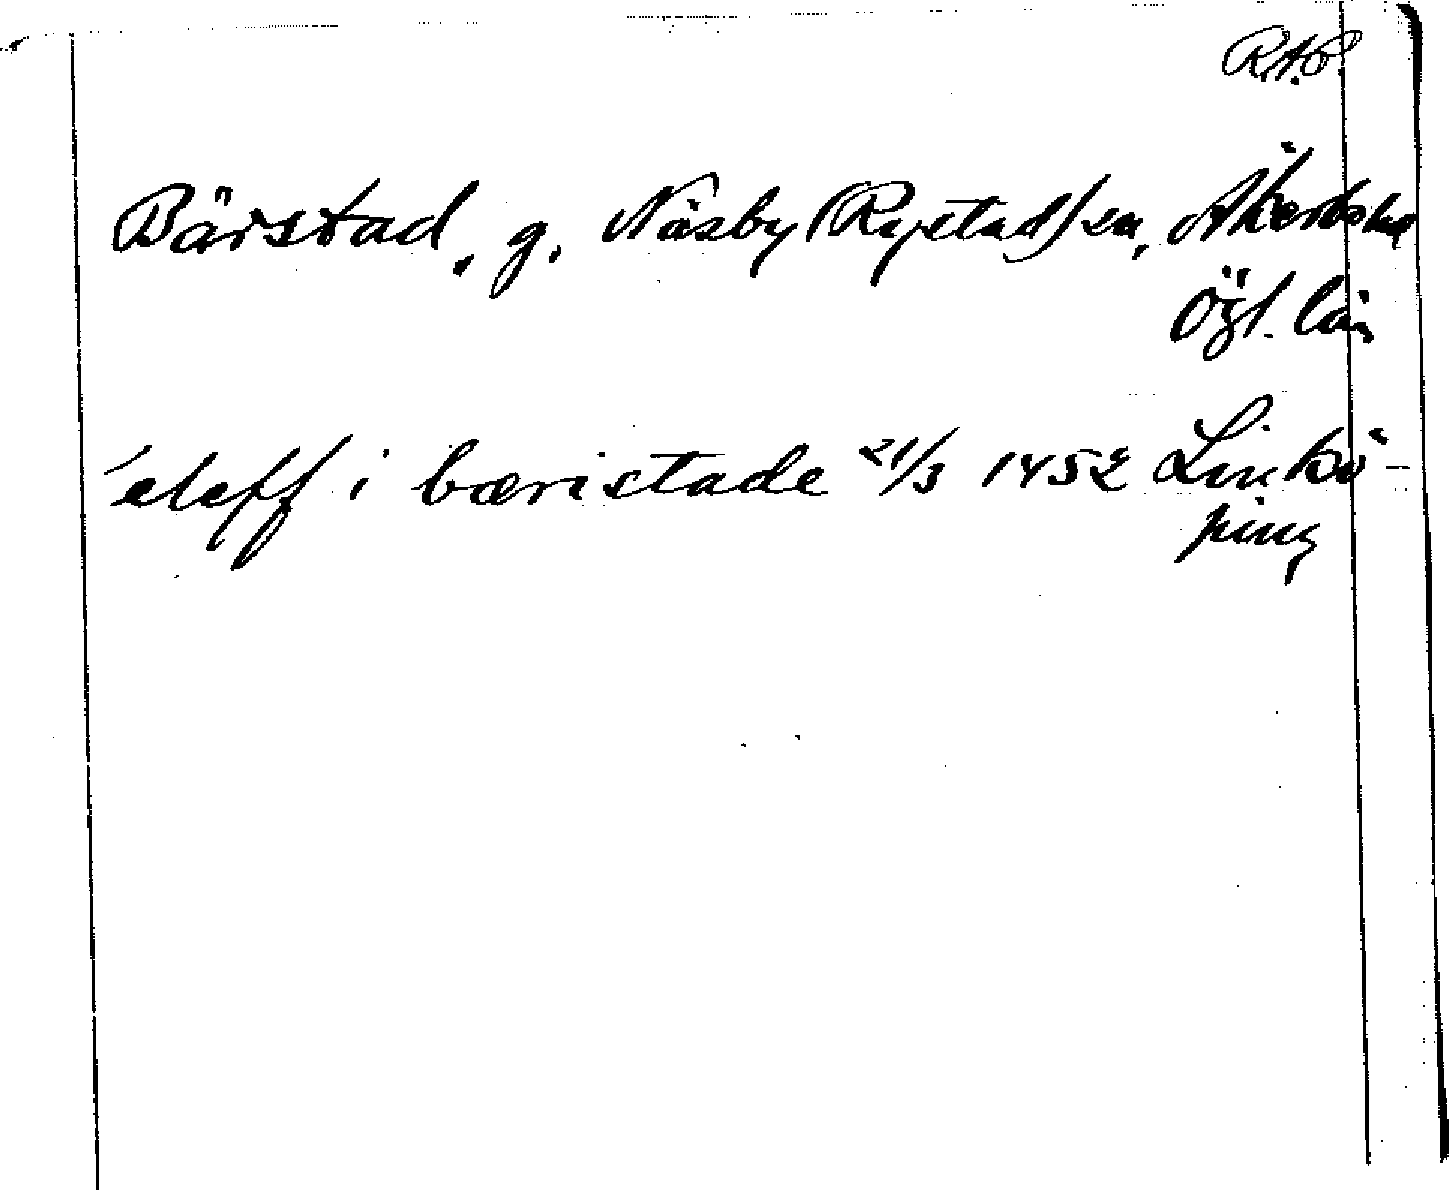 R.A.P.
Bärstad, g. Näsby (Rystad) sn, Åkerbo hd
Ögl. län
eleff i bæristade 21/3 1452 Linkö-
ping